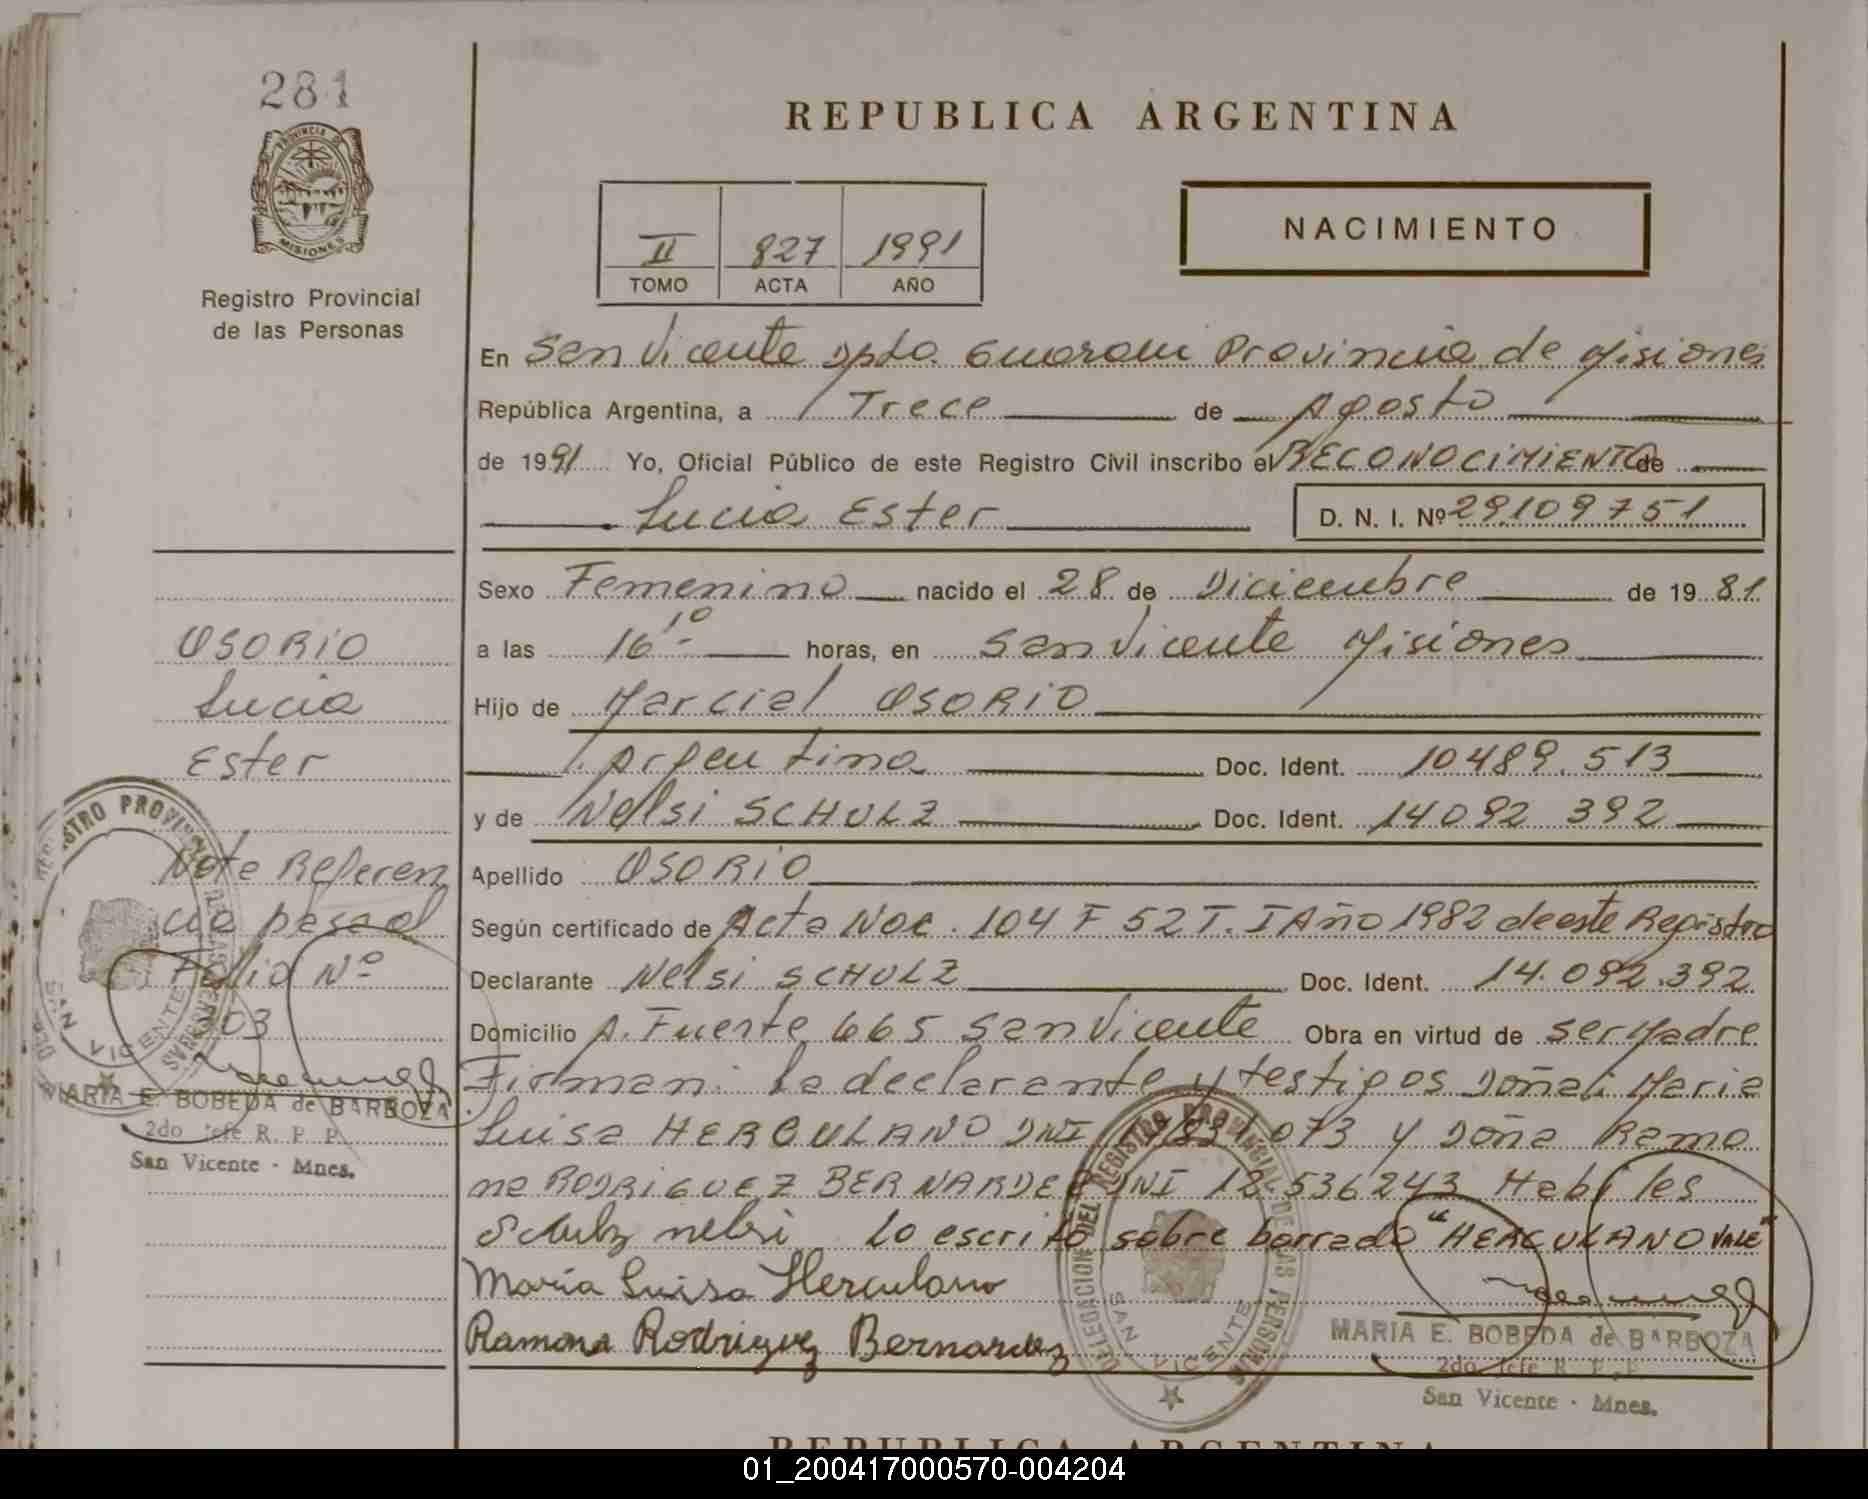 281
PROVINCIA DE
MISIONES
Registro Provincial
de las Personas
OSORIO
Lucia
Ester
Nota Referen
cia
Folio Nº
MARIA E. BOBEDA de BARBOZA
2do Jefe R. P. P.
San Vicente - Mnes.
REPUBLICA ARGENTINA
II 827 1991
TOMO ACTA AÑO
NACIMIENTO
En San Vicente Dpto. Guarani Provincia de Misiones
República Argentina, a Trece de Agosto
de 1991 Yo, Oficial Público de este Registro Civil inscribo el RECONOCIMIENTO de
Lucia Ester D. N. I. Nº 29.109751
Sexo Femenino nacido el 28 de Diciembre de 1981
a las 16 10 horas, en San Vicente Misiones
Hijo de Marcial OSORIO
Argentina Doc. Ident. 10489.513
y de Nelsi SCHULZ Doc. Ident. 14092 392
Apellido OSORIO
Según certificado de Acta Nac. 104 F 52 T. I Año 1982 de este Registro
Declarante Nelsi SCHULZ Doc. Ident. 14.092.392
Domicilio A. Fuerte 665 San Vicente Obra en virtud de ser Madre
Firman: la declarante y testigos Doña: Maria
Luisa HERCULANO DNI 073 y Doña Ramo
na RODRIGUEZ BERNARDEZ DNI 12.536243 Habiles
Schulz nelsi Lo escrito sobre borrado "HERCULANO VALE"
Maria Luisa Herculano
Ramona Rodriguez Bernardez
DELEGACION DEL REGISTRO PROVINCIAL DE LAS PERSONAS
SAN VICENTE
MARIA E. BOBEDA de BARBOZA
2do Jefe R. P. P.
San Vicente - Mnes.
REPUBLICA ARGENTINA
01_200417000570-004204